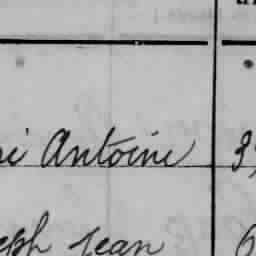 ri Antoine 3
eph Jean 6